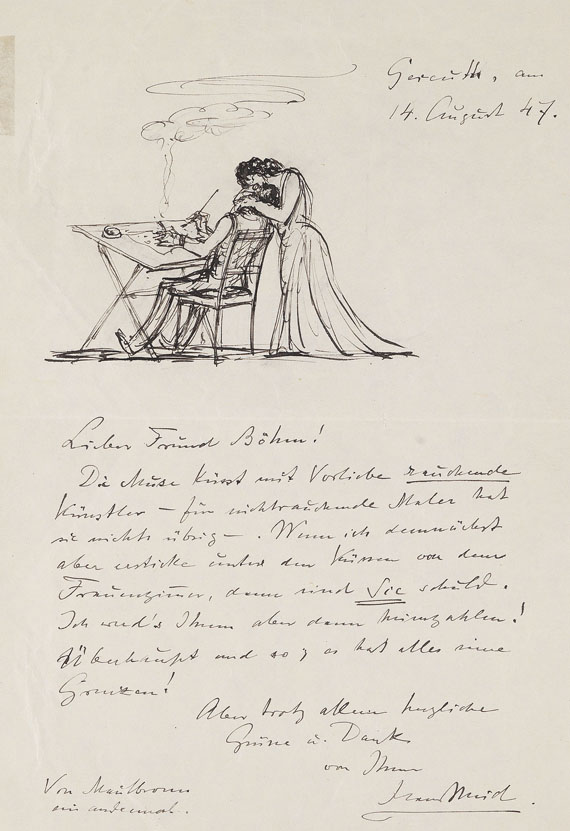 Gereuth, am
14. August 47.
Lieber Freund Böhm!
Die Muse küsst mit Vorliebe rauchende
Künstler – für nichtrauchende Maler hat
sie nichts übrig –. Wenn ich demnächst
aber ersticke unter den Küssen von dem
Frauenzimmer, dann sind Sie schuld.
Ich werd's Ihnen aber dann heimzahlen!
Überhaupt und so; es hat alles seine
Grenzen!
Aber trotz allem herzliche
Grüsse u. Dank
von Ihrem
Hans Meid.
Von Maulbronn
ein andermal.